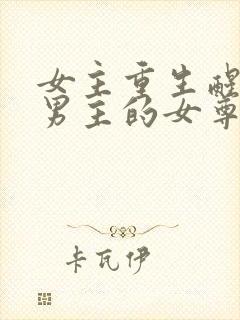 女主重生醒
男主的女尊
卡瓦伊